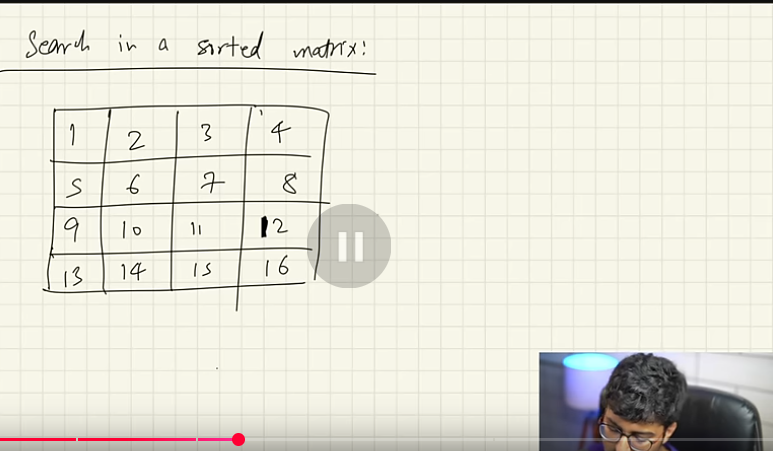 Search in a sorted matrix:
1 2 3 4
5 6 7 8
9 10 11 12
13 14 15 16